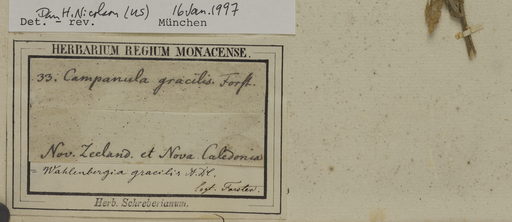 Dan H. Nicolson (US) 16 Jan. 1997
Det. rev. München
HERBARIUM REGIUM MONACENSE.
33. Campanula gracilis. Forst.
Nov. Zeeland. et Nova Caledonia
= Wahlenbergia gracilis A.DC.
legt. Forster.
Herb. Schreberianum.